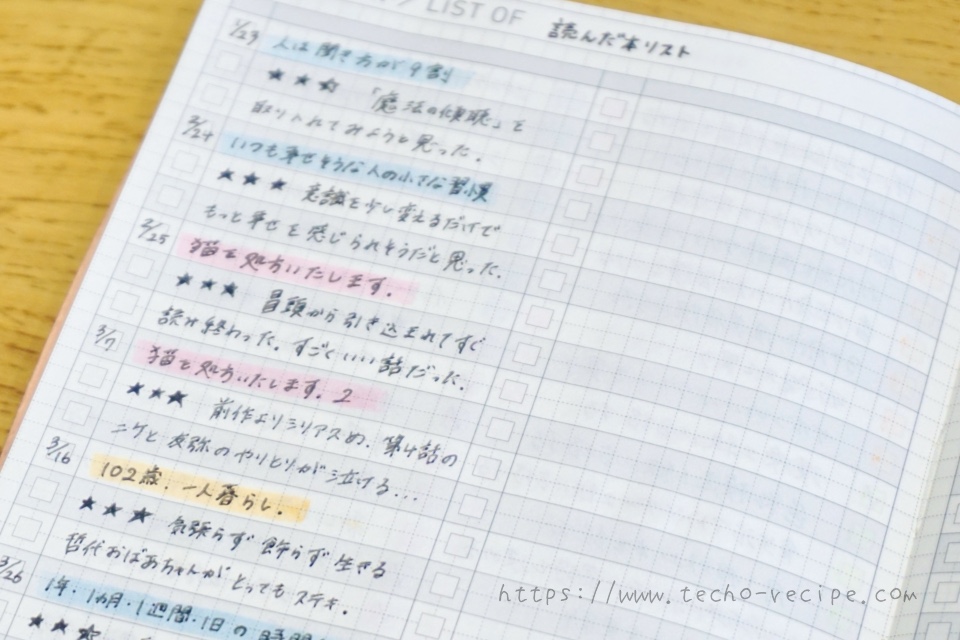 / LIST OF 読んだ本リスト
1/23 人は聞き方が9割
★★★ 「魔法の傾聴」を
取り入れてみようと思った。
2/24 いつも幸せそうな人の小さな習慣
★★★ 意識を少し変えるだけで
もっと幸せを感じられそうだと思った。
2/25 猫を処方いたします。
★★★ 冒頭から引き込まれてすぐ
読み終わった。すごくいい話だった。
3/7 猫を処方いたします。2
★★★ 前作よりシリアスめ。第4話の
ニケと友弥のやりとりが泣ける...
3/16 102歳、一人暮らし。
★★★ 気張らず飾らず生きる
哲代おばあちゃんがとってもステキ。
3/26 1年・1ヵ月・1週間・1日の時間
★★★
https://www.techo-recipe.com/